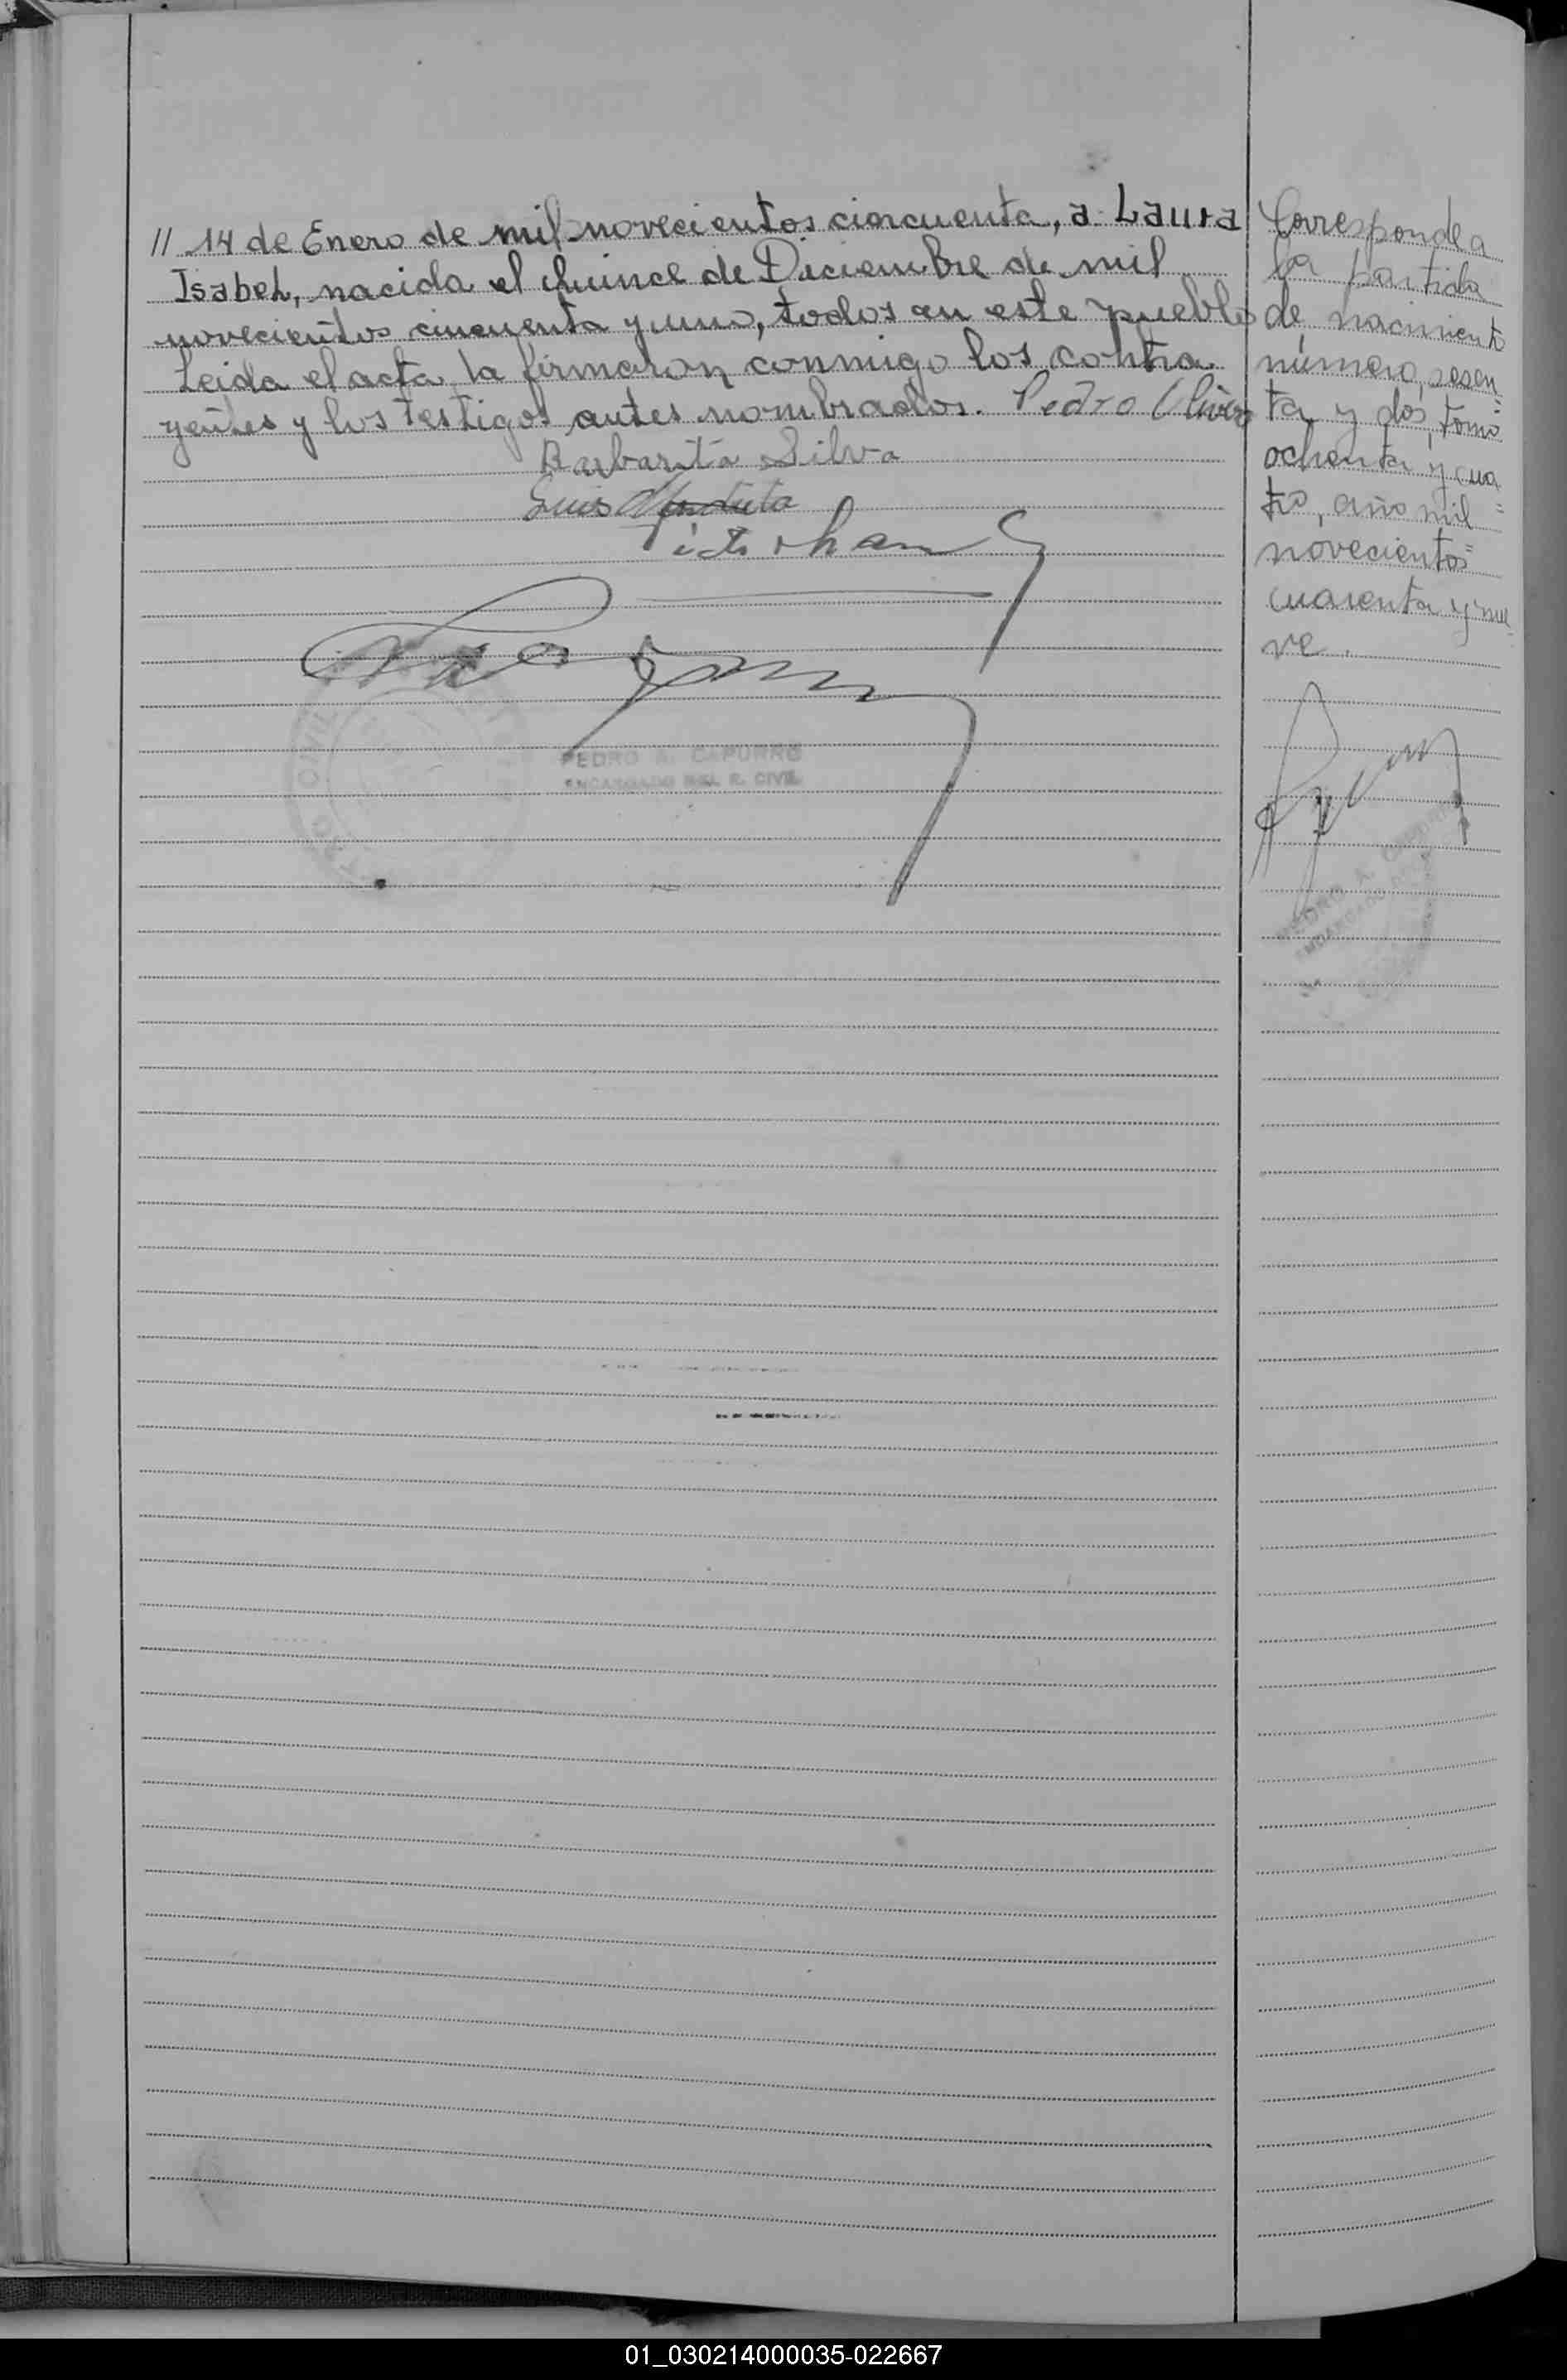 // 14 de Enero de mil novecientos cincuenta, a Laura
Isabel, nacida el quince de Diciembre de mil
novecientos cincuenta y uno, todos en este pueblo
Leida el acta, la firmaron conmigo los contra
yentes y los testigos antes nombrados. Pedro Olivera
Barbarita Silva
Luis
PEDRO A. CAPURRO
ENCARGADO DEL R. CIVIL
CIVIL
Corresponde a
la partida
de nacimiento
número, sesen=
ta y dos, tomo
ochenta y cua
tro, año mil =
novecientos=
cuarenta y nue-
ve.
PEDRO A. CAPURRO
ENCARGADO DEL
01_030214000035-022667